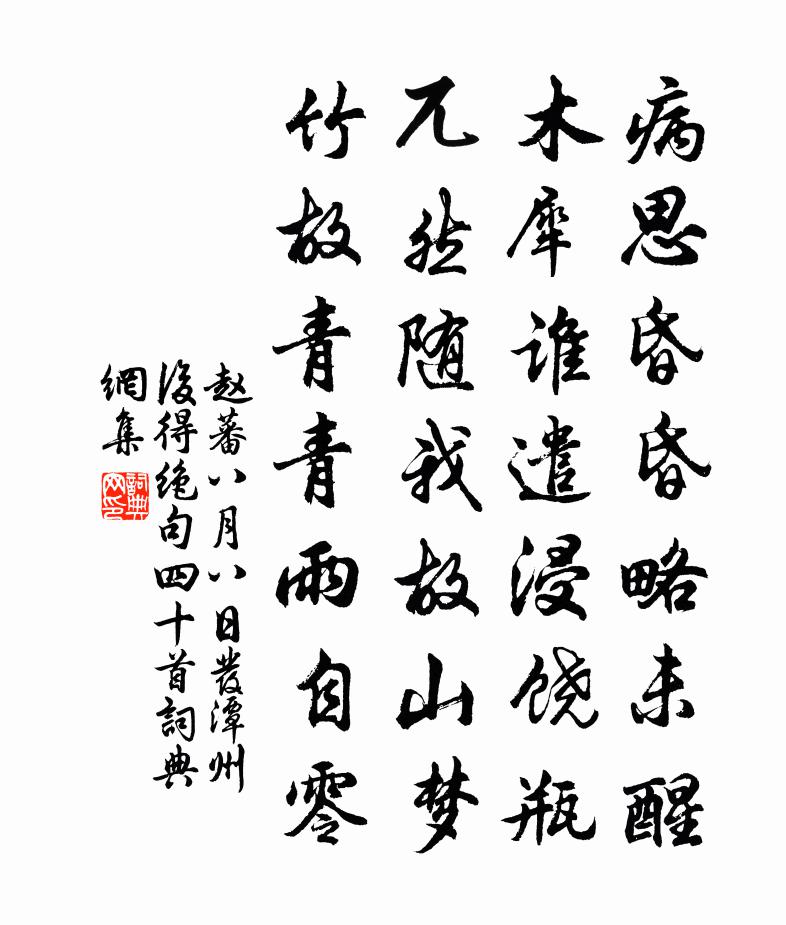 病思昏昏略未醒
木犀谁遣浸饶瓶
兀然随我故山梦
竹故青青雨自零
赵蕃八月八日發潭州
後得绝句四十首詞典
網集
詞典
网印